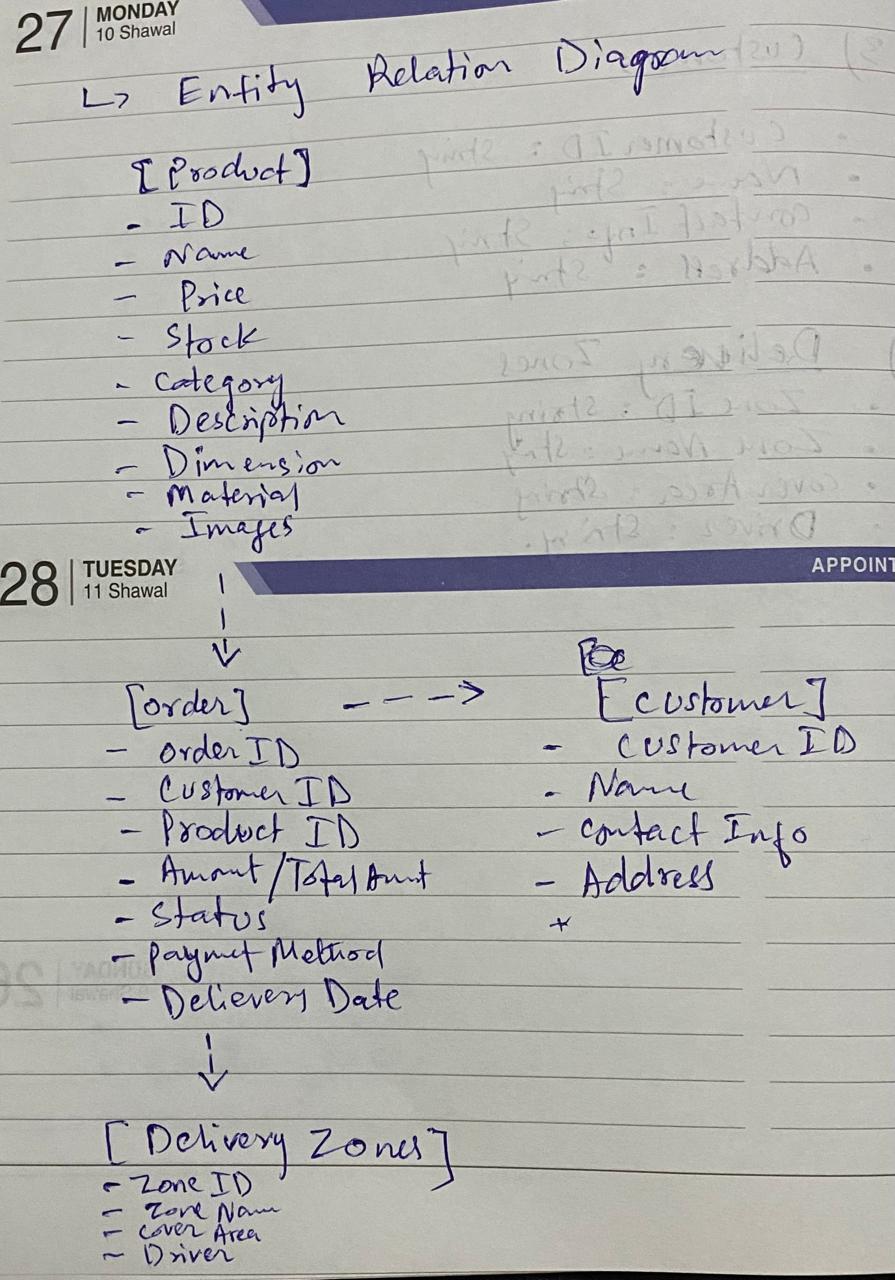 27 MONDAY
10 Shawal
↳ Entity Relation Diagram
[Product]
- ID
- Name
- Price
- Stock
- Category
- Description
- Dimension
- Material
- Images
28 TUESDAY
11 Shawal
APPOINT
[order] ---> [customer]
- order ID
- Customer ID
- Product ID
- Amount/Total Amt
- Status
- Paymet Method
- Delievery Date
- Customer ID
- Name
- Contact Info
- Address
[Delivery Zones]
- Zone ID
- Zone Name
- Cover Area
- Driver